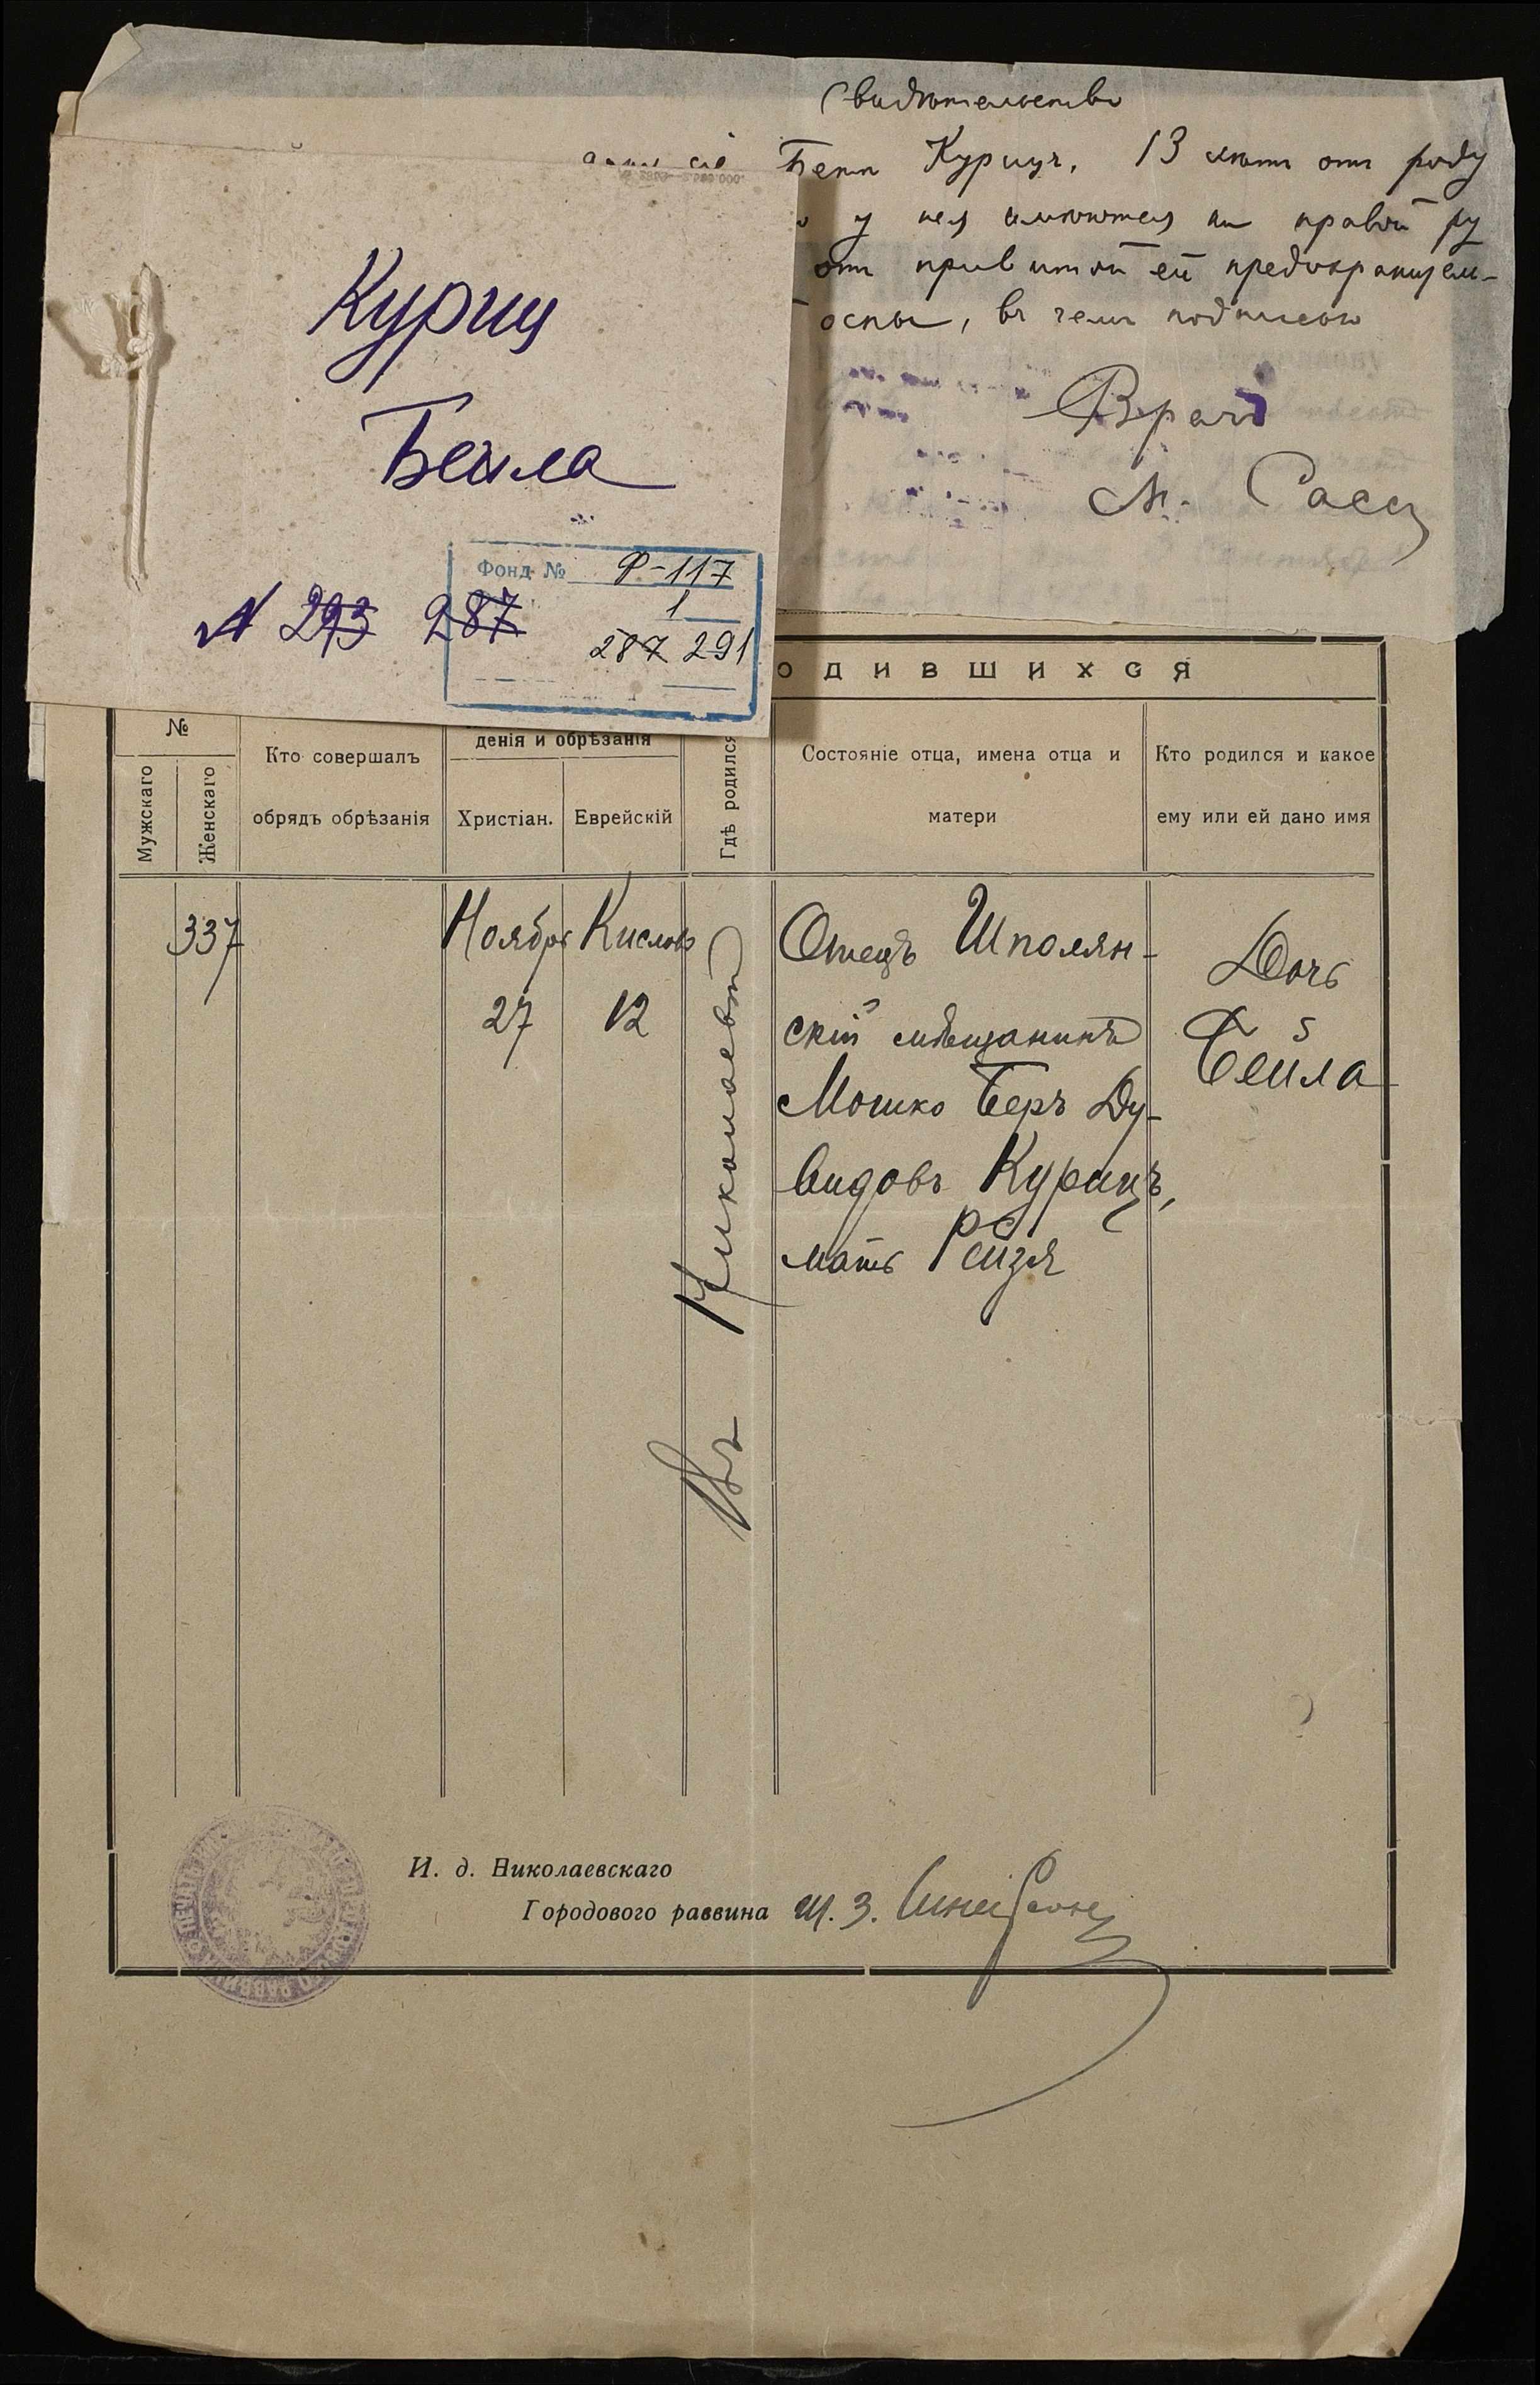 Свидѣтельство
сіе Бетѣ Курицъ, 13 лѣтъ отъ роду
у нея имѣются на правой ру
отъ привитой ей предохранител-
оспы, въ чемъ подписью
Врачъ
М. Сасс
Куриц
Бейла
N 293 287
Фонд № Р-117
1
287 291
ОДИВШИХСЯ
№
Мужскаго
Женскаго
Кто совершалъ
обрядъ обрѣзанія
денія и обрѣзанія
Христіан.
Еврейскій
Гдѣ родился
Состояніе отца, имена отца и
матери
Кто родился и какое
ему или ей дано имя
337
Ноября
27
Кислевъ
12
Въ Николаевѣ
Отецъ Шполян-
скій мѣщанинъ
Мошко Беръ Ду-
видовъ Курицъ,
мать Рейзя
Дочь
Бейла
И. д. Николаевскаго
Городового раввина Ш. З.